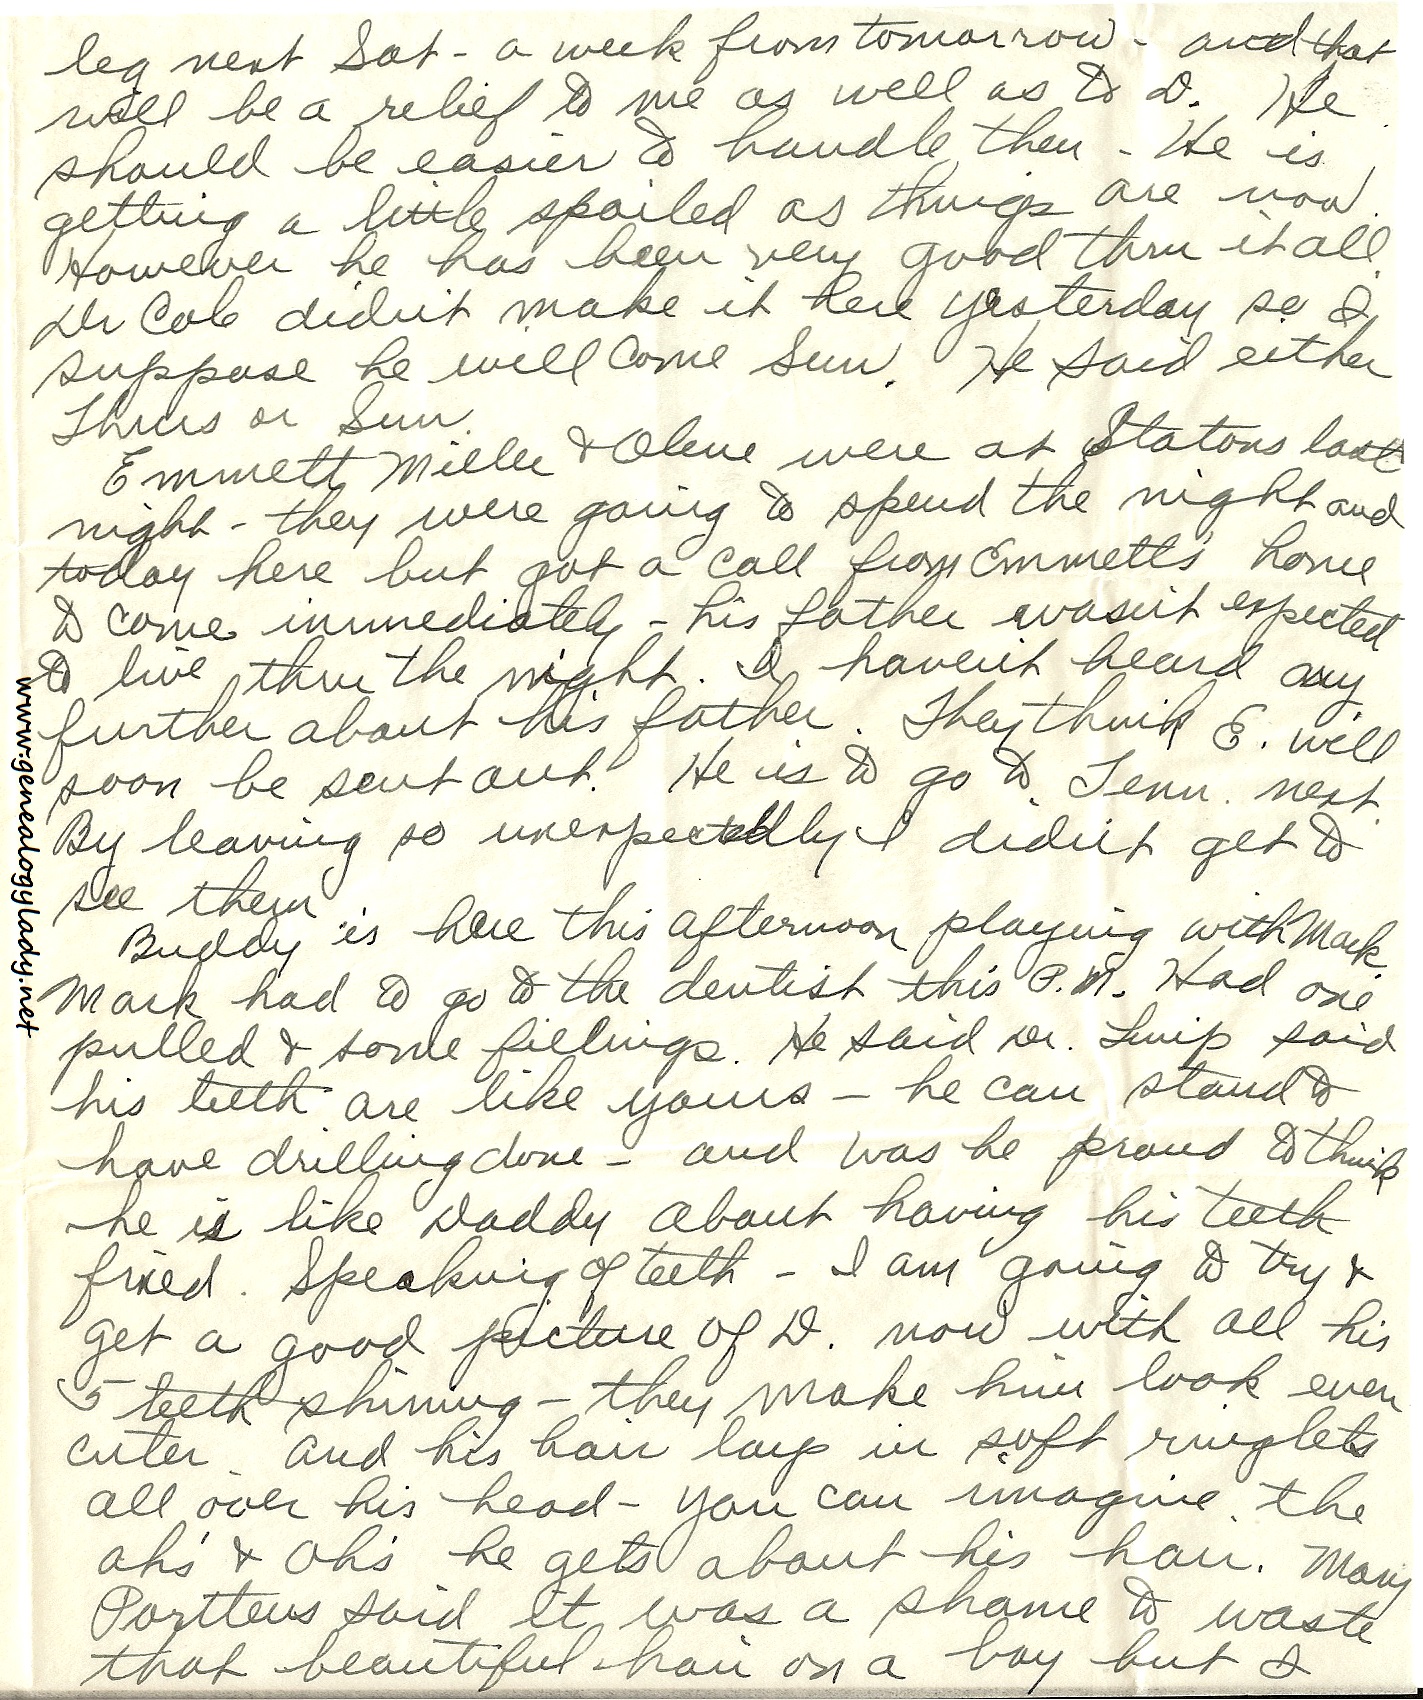 leg next Sat - a week from tomorrow - and that
will be a relief to me as well as to D. He
should be easier to handle then - He is
getting a little spoiled as things are now.
However he has been very good thru it all.
Dr Cole didn't make it here yesterday so I
suppose he will come Sun. He said either
Thurs or Sun.
Emmett Miller & Olene were at Statons last
night - they were going to spend the night and
today here but got a call from Emmett's home
to come immediately - his father wasn't expected
to live thru the night. I haven't heard any
further about his father. They think E. will
soon be sent out. He is to go to Tenn. next.
By leaving so unexpectedly I didn't get to
see them.
Buddy is here this afternoon playing with Mark
Mark had to go to the dentist this P.M. Had one
pulled & some fillings. He said Dr. said
his teeth are like yours - he can stand to
have drilling done - and was he proud to think
he is like Daddy about having his teeth
fixed. Speaking of teeth - I am going to try &
get a good picture of D. now with all his
5 teeth shining - they make him look even
cuter. And his hair lays in soft ringlets
all over his head - you can imagine the
ah's & Oh's he gets about his hair. Mary
Portteus said it was a shame to waste
that beautiful hair on a boy but I
www.genealogylady.net